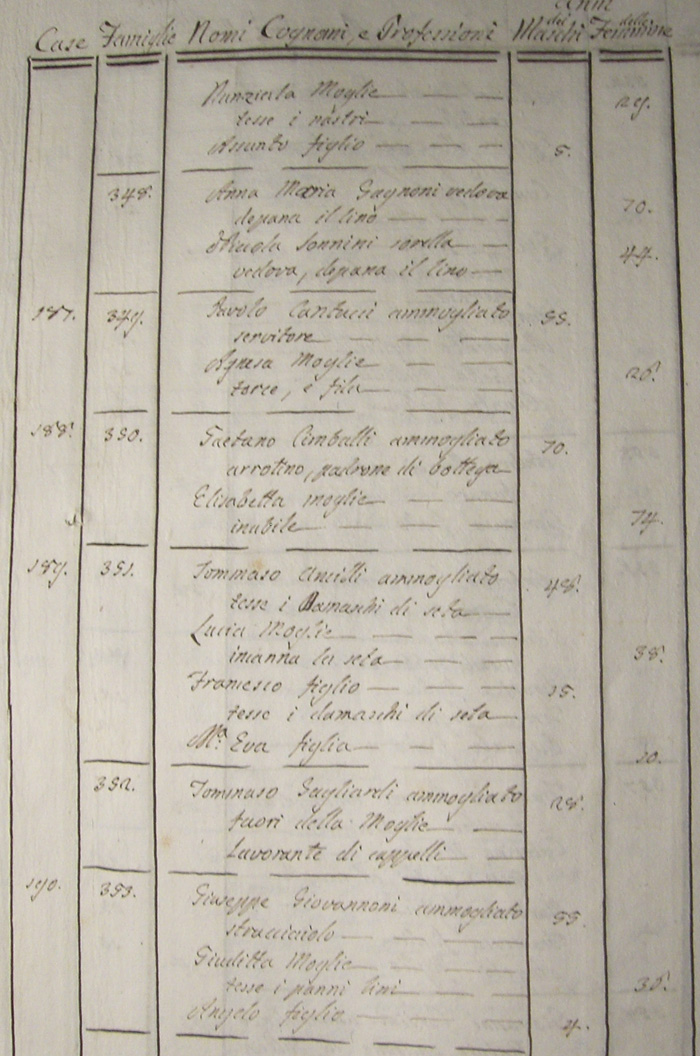 Anni
Case Famiglie Nomi Cognomi, e Professioni dei Maschi delle Femmine
Nunziata Moglie 29.
tesse i nastri
Assunto figlio 8.
348. Anna Maria Gagnoni vedova
depana il lino 70.
Sonnini sorella
vedova, depana il lino 44.
187. 349. Pavolo Cantucci ammogliato 55.
servitore
Agnesa Moglie
torce, e fila 26.
188. 350. Gaetano Cimballi ammogliato 70.
arrotino, padrone di bottega
Elisabetta moglie
inabile 74.
189. 351. Tommaso ammogliato 48.
tesse i Damaschi di seta
Lucia Moglie
incanna la seta 38.
Francesco figlio 15.
tesse i damaschi di seta
Mª. Eva figlia 10.
352. Tommaso Gagliardi ammogliato 28.
fuori della Moglie
Lavorante di cappelli
190. 353. Giuseppe Giovannoni ammogliato 55
stracciaiolo
Giuditta Moglie
tesse i panni lini 36.
Angelo figlio 4.